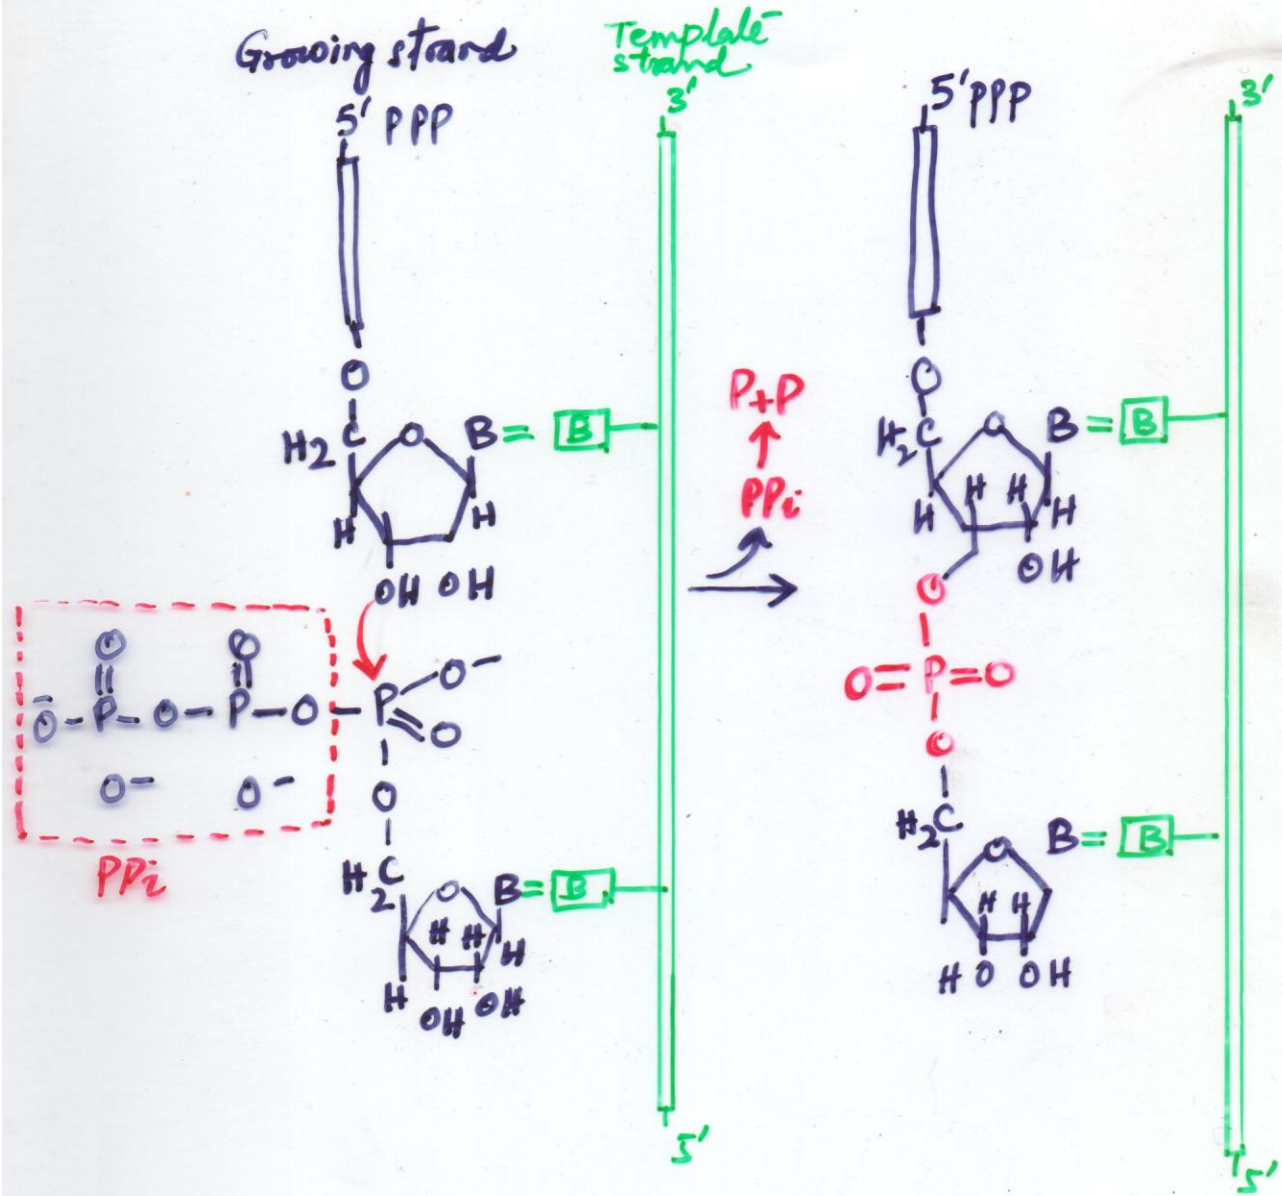 Growing strand
Template
strand
5' PPP
3'
O
H2 C O B = B
H H
OH OH
O O
O- P - O - P - O - P O-
O
O- O-
PPi
O
H2 C O B = B
H H H
H OH OH
5'
P+P
PPi
5' PPP
3'
O
H2 C O B = B
H H H H
O OH
O = P = O
O
H2 C O B = B
H H
HO OH
5'